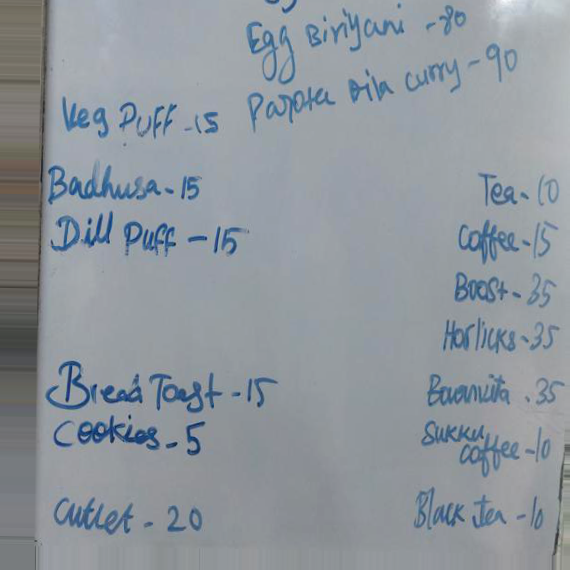 Egg Biriyani - 80
Parota with curry - 90
Veg Puff - 15
Badhusa - 15
Dill Puff - 15
Bread Toast - 15
Cookies - 5
Cutlet - 20
Tea - 10
Coffee - 15
Boost - 35
Horlicks - 35
Bournvita . 35
Sukku
coffee - 10
Black Tea - 10